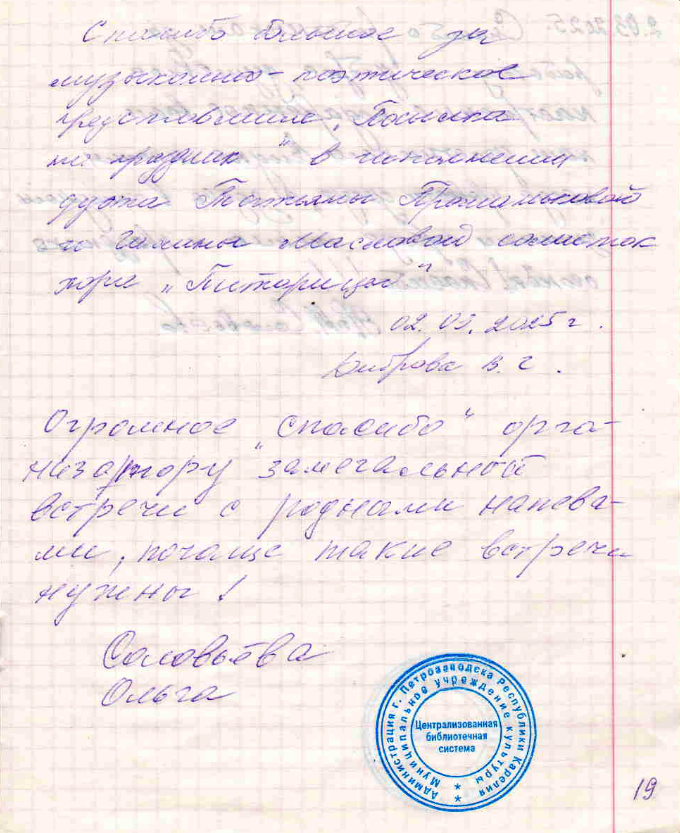 Спасибо большое за
музыкально-поэтическое
представление „Посылка
на праздник" в исполнении
дуэта Татьяны
и Галины Масловой солисток
хора „Питарицы"
02.03.2025 г.
В. Г.
Огромное „спасибо" орга-
низатору замечальной
встречи с родными напева-
ми, почаще такие встречи
нужны!
Соловьёва
Ольга
Администрация г. Петрозаводска Республики Карелия
Муниципальное учреждение культуры
Централизованная
библиотечная
система
19